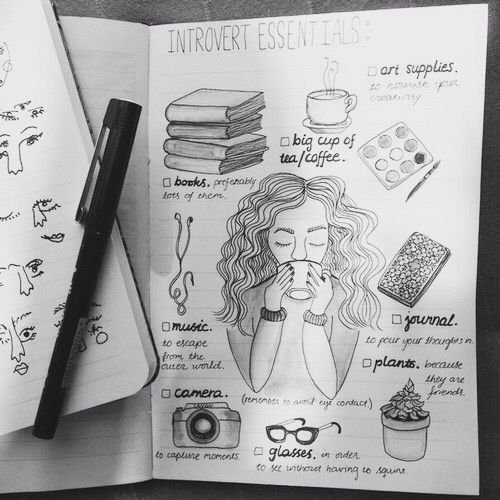 INTROVERT ESSENTIALS:
art supplies.
to nourish your
creativity
big cup of
tea/coffee.
books. preferably
lots of them.
music.
to escape
from the
outer world.
journal.
to pour your thoughts in.
plants. because
they are
friends.
camera.
(remember to avoid eye contact.)
to capture moments
glasses. in order
to see without having to squint.